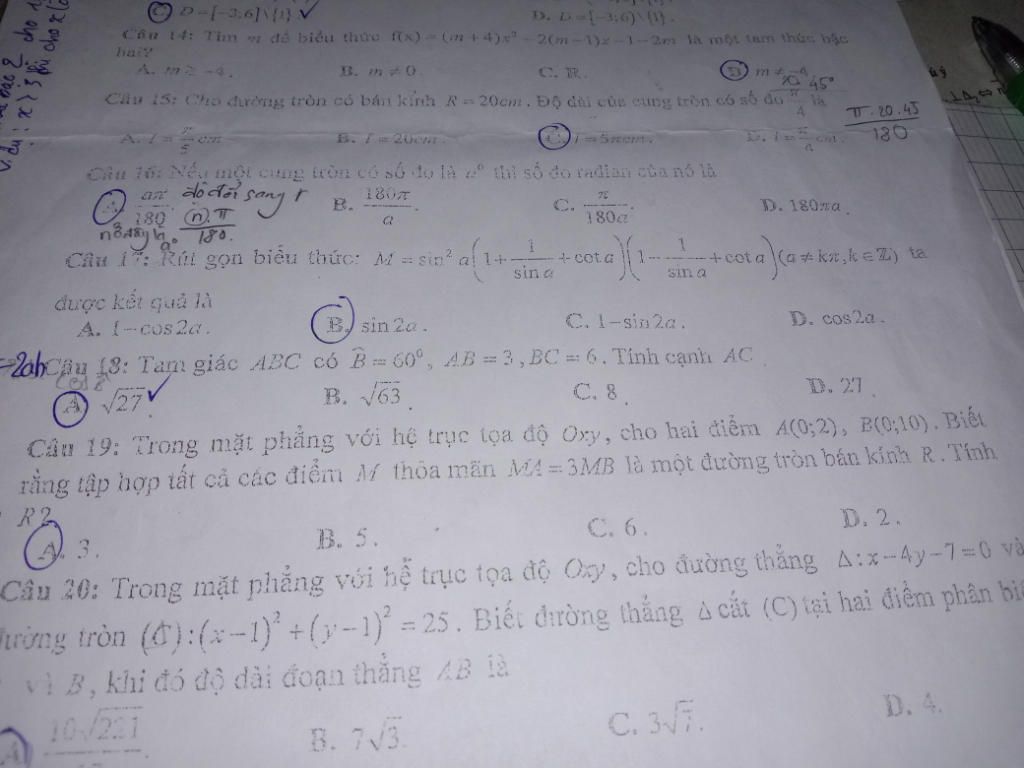 C. D=[-3;6]\{1} ✓ D. D=(-3;6)\{1}.
Câu 14: Tìm m để biểu thức f(x) = (m+4)x² − 2(m−1)x − 1 − 2m là một tam thức bậc
hai?
A. m ≥ −4. B. m ≠ 0. C. ℝ. D. m ≠ −4
45°
Câu 15: Cho đường tròn có bán kính R = 20cm. Độ dài của cung tròn có số đo π/4 là
π.20.45/180
A. l = π/5 cm B. l = 20cm. C. l = 5πcm. D. cm.
Câu 16: Nếu một cung tròn có số đo là a° thì số đo radian của nó là
A. aπ/180 độ đổi sang r B. 180π/a. C. π/180a. D. 180πa.
n.π/180.
a°
Câu 17: Rút gọn biểu thức: M = sin² a(1 + 1/sin a + cot a)(1 − 1/sin a + cot a)(a ≠ kπ, k ∈ ℤ) ta
được kết quả là
A. 1 − cos 2a. B. sin 2a. C. 1 − sin 2a. D. cos 2a.
2ab Câu 18: Tam giác ABC có B̂ = 60⁰, AB = 3, BC = 6. Tính cạnh AC
A √27. ✓ B. √63. C. 8. D. 27.
Câu 19: Trong mặt phẳng với hệ trục tọa độ Oxy, cho hai điểm A(0;2), B(0;10). Biết
rằng tập hợp tất cả các điểm M thỏa mãn MA = 3MB là một đường tròn bán kính R. Tính
R?
A. 3. B. 5. C. 6. D. 2.
Câu 20: Trong mặt phẳng với hệ trục tọa độ Oxy, cho đường thẳng Δ: x − 4y − 7 = 0 và
đường tròn (C): (x−1)² + (y−1)² = 25. Biết đường thẳng Δ cắt (C) tại hai điểm phân biệ
và B, khi đó độ dài đoạn thẳng AB là
A 10√221 B. 7√3. C. 3√7. D. 4.